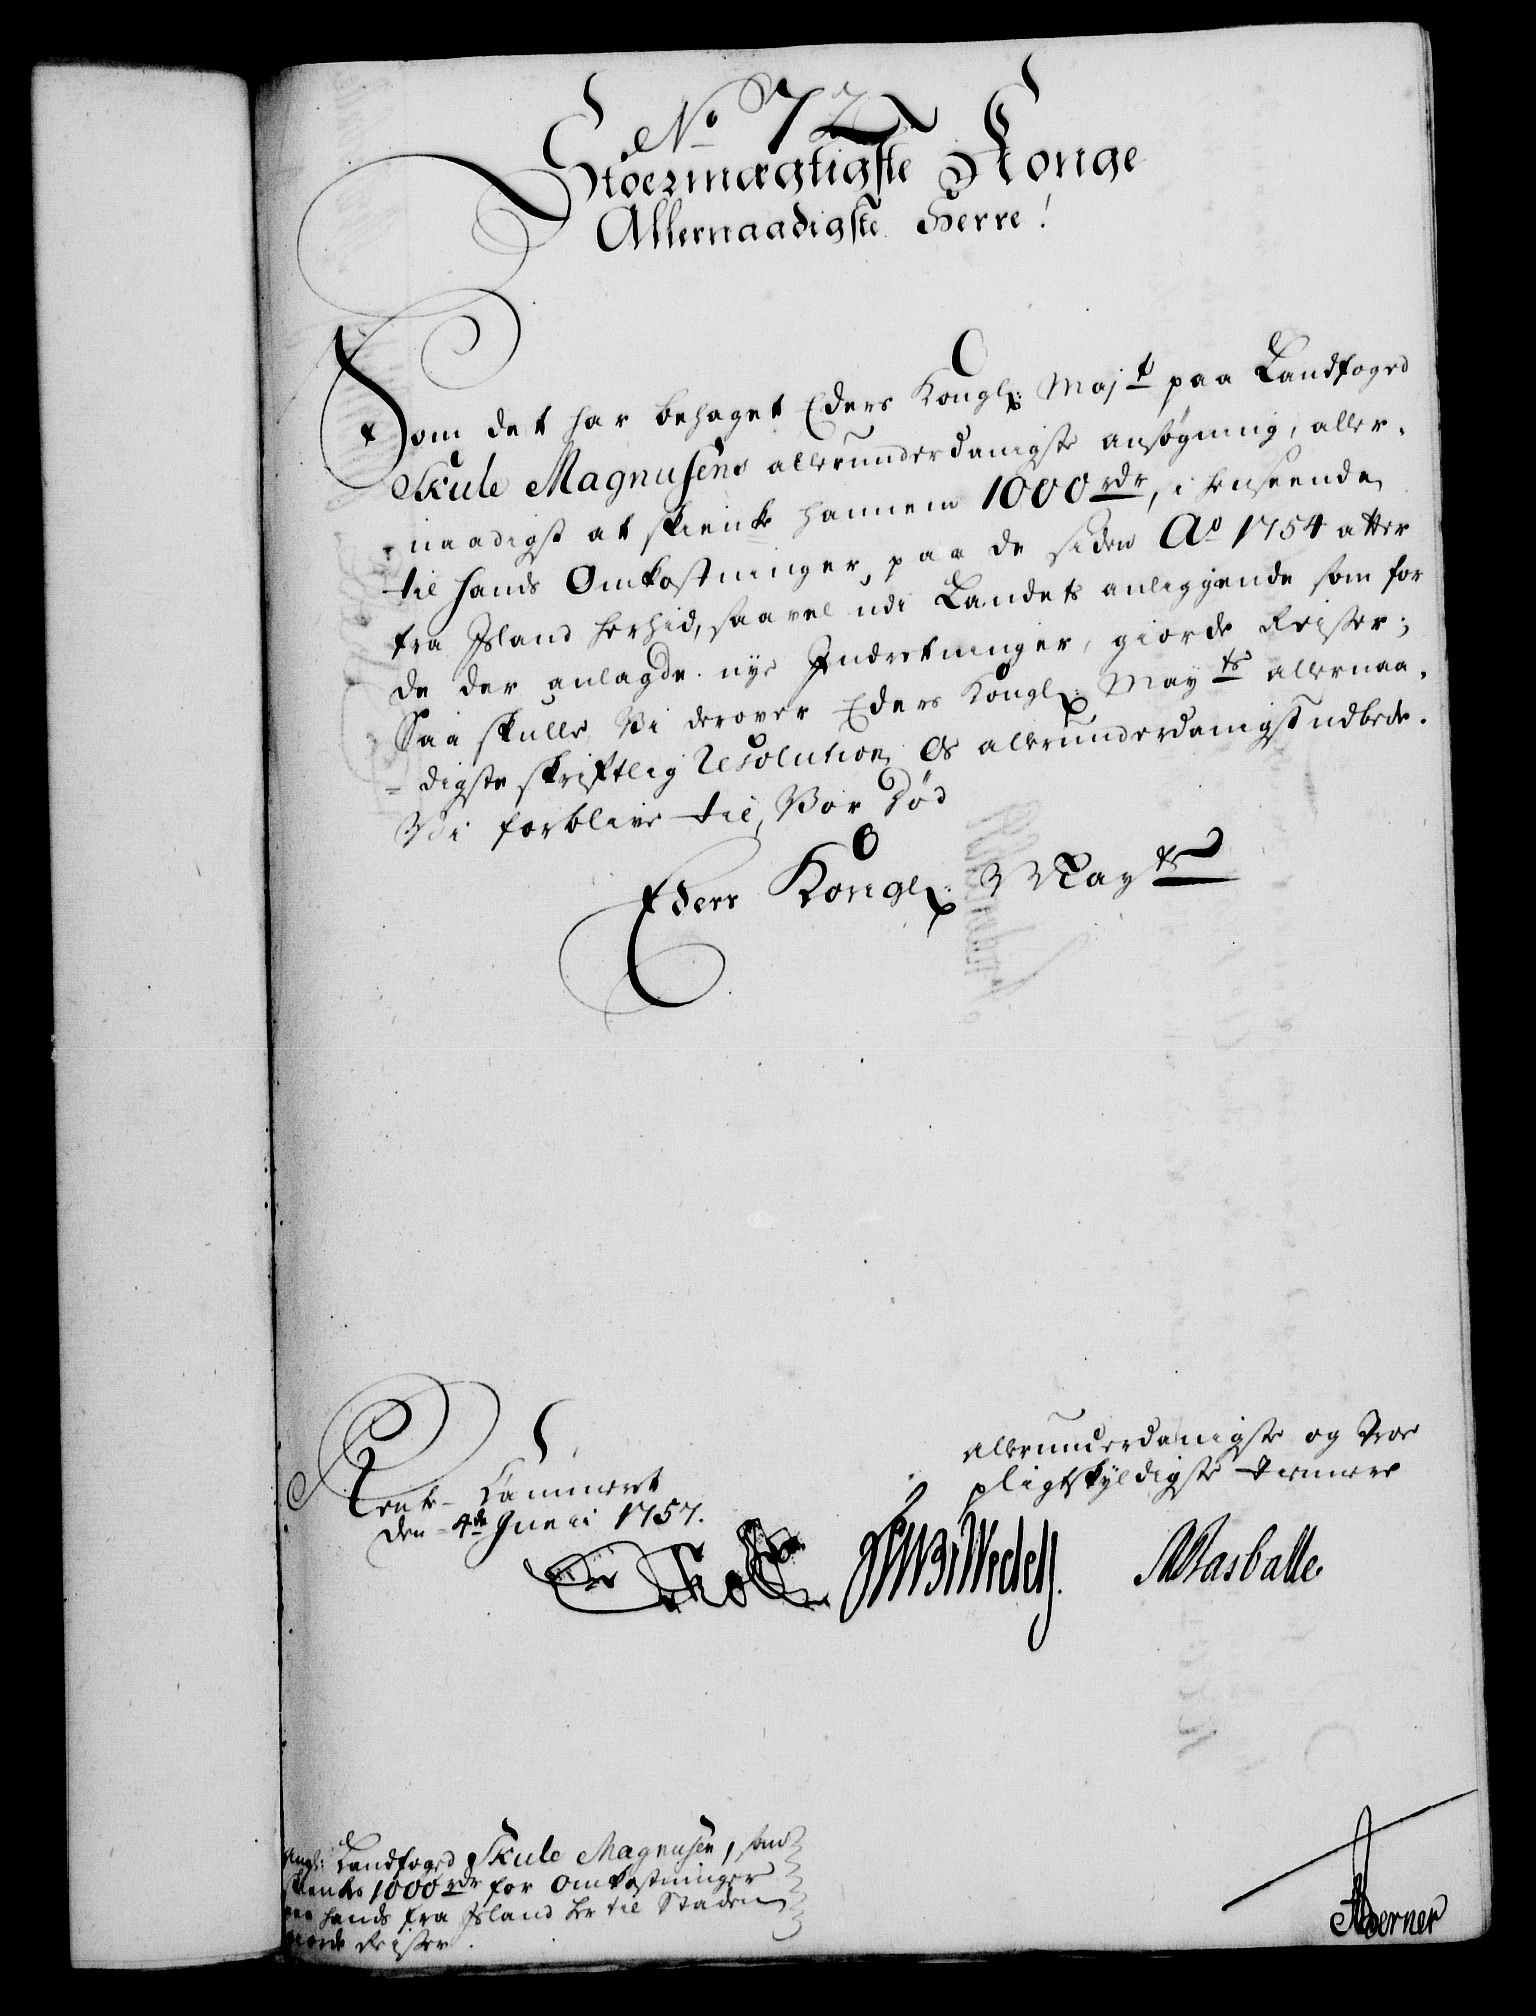 No 72
Stoermægtigste Konge
Allernaadigste Herre!
Som det har behaget Eders Kongl: Majt paa Landfoged
Skule Magnusens allerunderdanigste ansøgning, aller-
naadigst at skienke hannem 1000 rdr, i henseende
til hands Omkostninger, paa de siden Ao 1754 atter
fra Island herhid, saavel udi Landets anliggende som for
de der anlagde nye Indretninger, giorde Reisser;
Saa skulle Vi derover Eders Kongl: Mayts allernaa-
digste skriftlig Resolution Os allerunderdanigst udbede.
Vi forblive til Vor Død
Eders Kongl: Mayts
allerunderdanigste og Troe
pligtskyldigste Tienere
Rente-Cammeret
den 4de Junii 1757.
Wedell
Basballe
Angl: Landfoged Skule Magnusen, som
skienkes 1000 rdr for Omkostninger
paa hands fra Island her til Staden
giorde Reisser.
Aderner